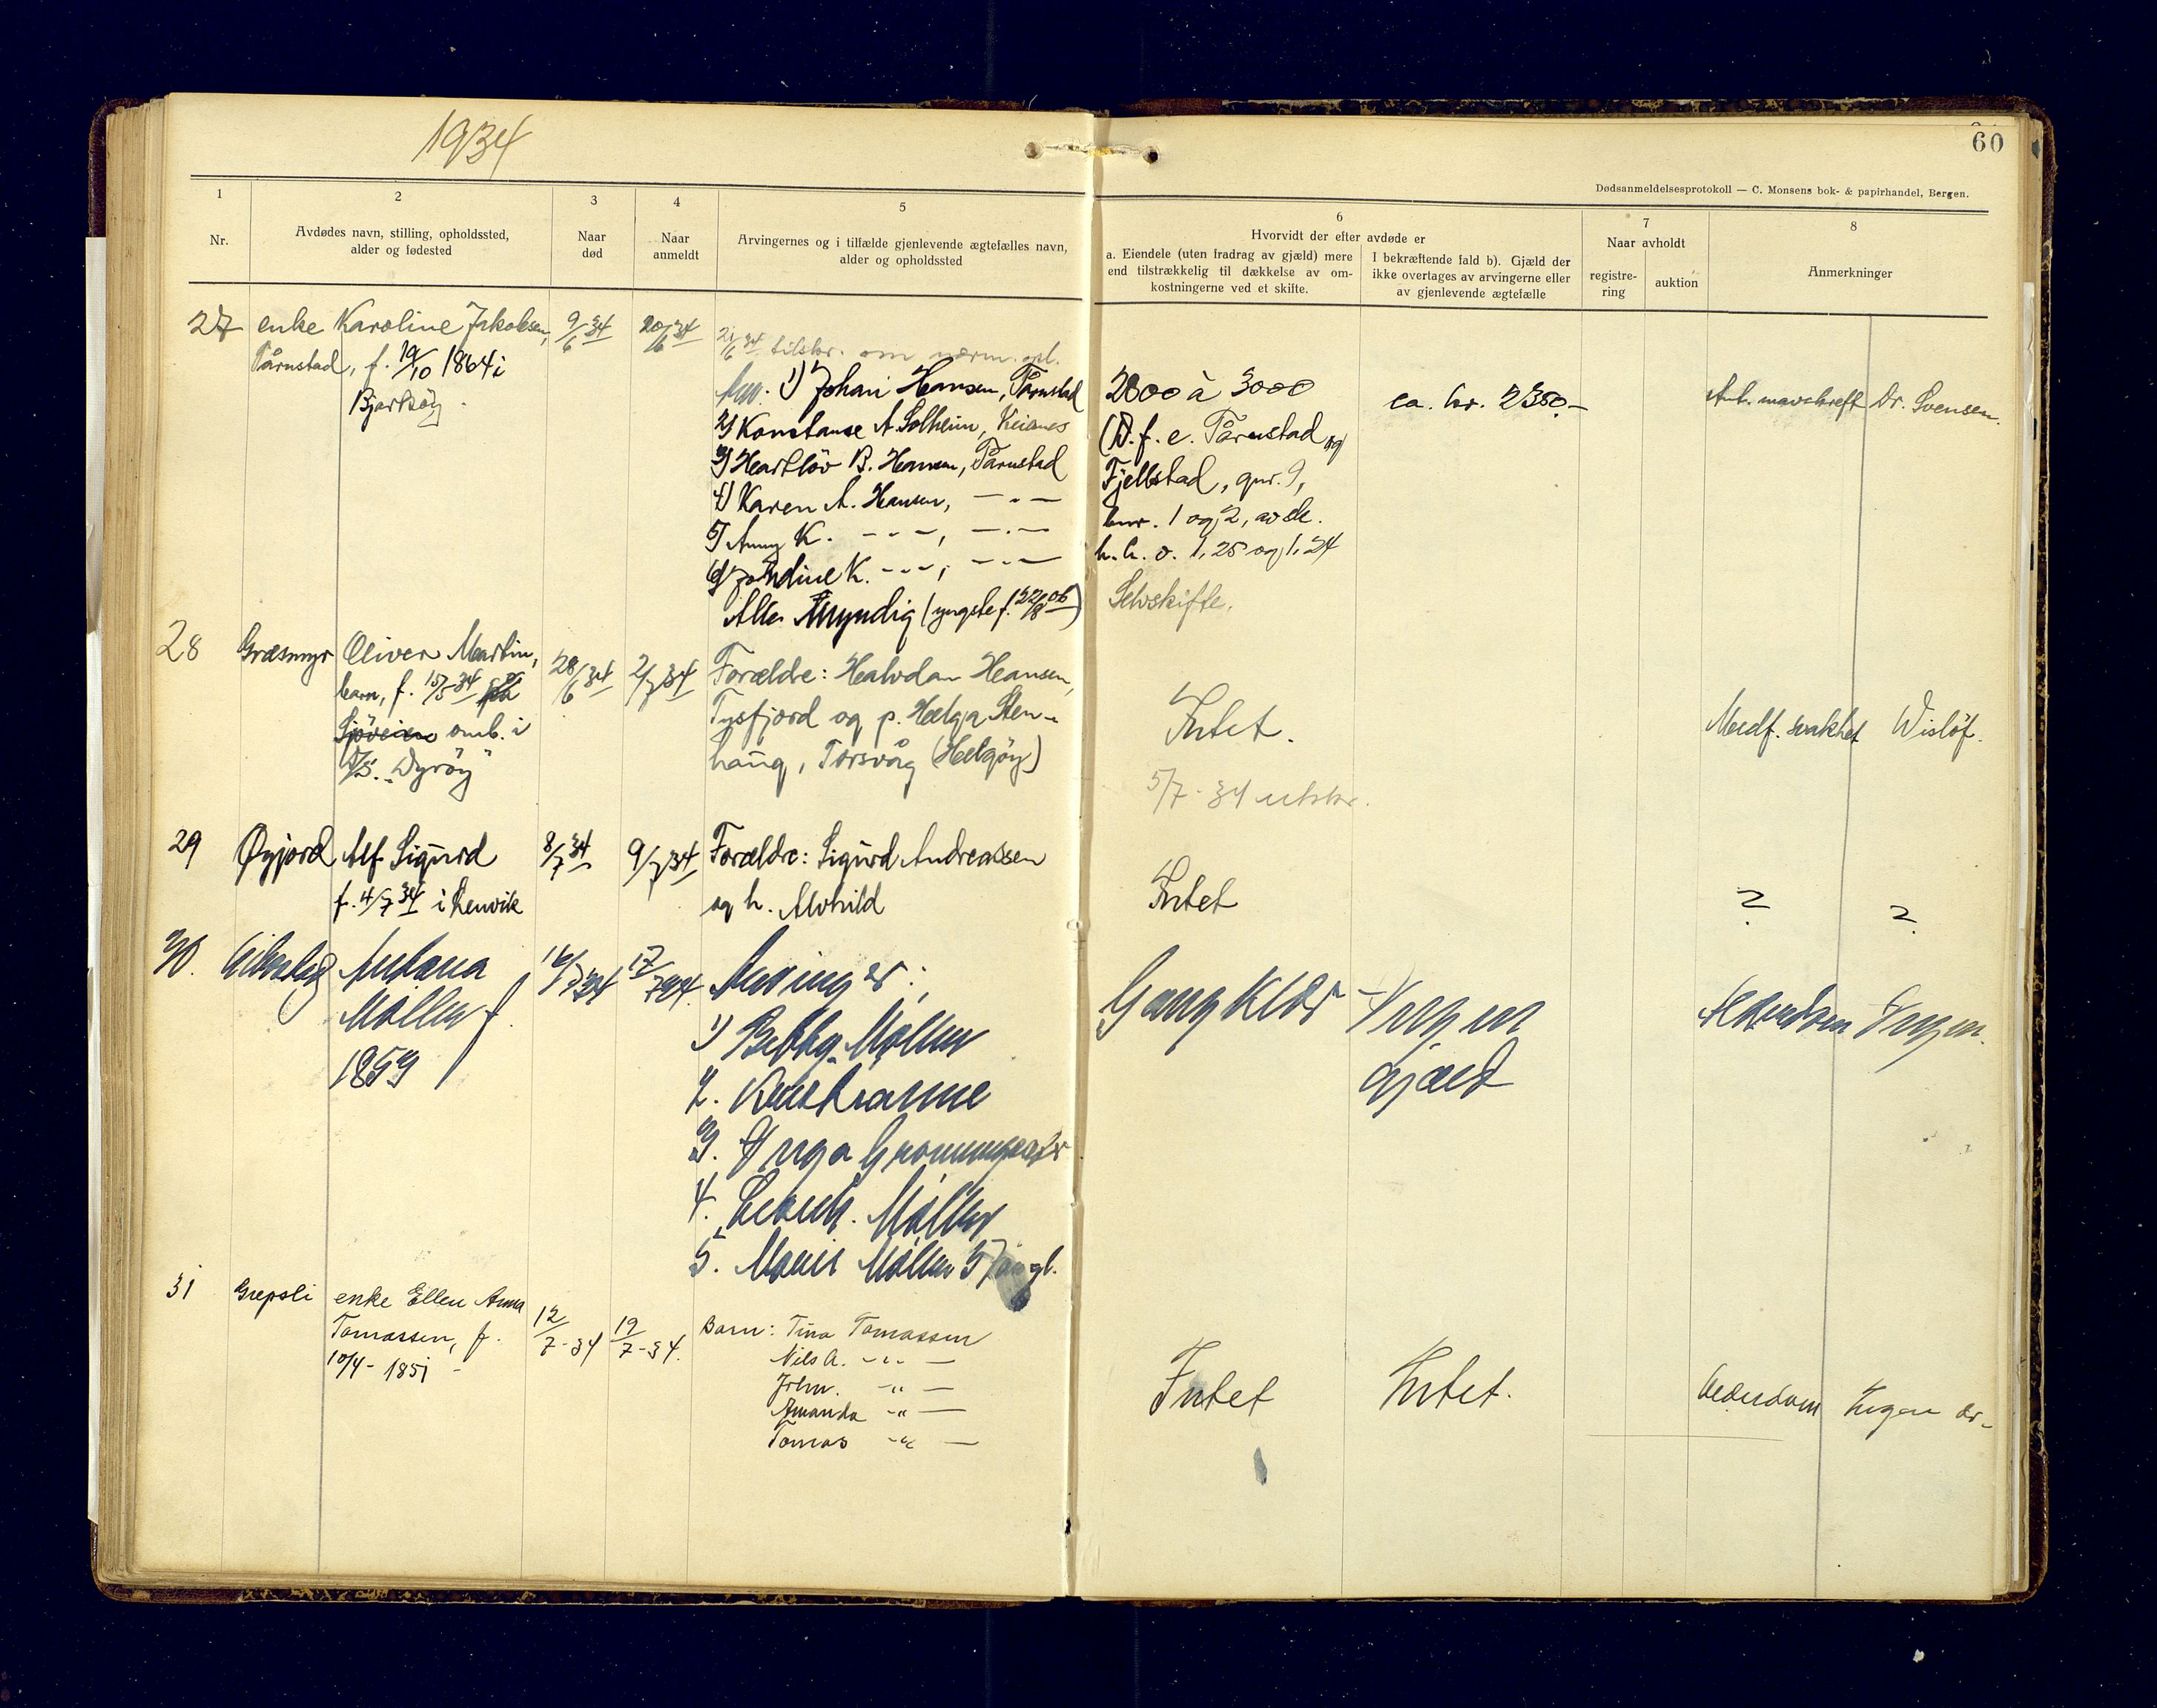 1934
60
Dødsanmeldelsesprotokoll — C. Monsens bok- & papirhandel, Bergen.
1
2
3
4
5
6
7
8
Nr.
Avdødes navn, stilling, opholdssted,
alder og fødested
Naar
død
Naar
anmeldt
Arvingernes og i tilfælde gjenlevende ægtefælles navn,
alder og opholdssted
Hvorvidt der efter avdøde er
a. Eiendele (uten fradrag av gjæld) mere
end tilstrækkelig til dækkelse av om-
kostningerne ved et skifte.
I bekræftende fald b). Gjæld der
ikke overtages av arvingerne eller
av gjenlevende ægtefælle
Naar avholdt
registre-
ring
auktion
Anmerkninger
27
enke Karoline Jakobsen,
Tårnstad, f. 19/10 1864 i
Bjarkøy
9/6 34
20/6 34
21/6 34 tilskr. om nærm. opl.
1) Johan Hansen, Tårnstad
2) Konstanse A. Solheim,
3) Hartløv B. Hansen, Tårnstad
4) Karen A. Hansen, — „ —
5) Anny K. - „ -, — „ —
6) Jordine K. - „ -, — „ —
Alle myndig (yngste f. 22/8 06)
2800 à 3000
(D. f. e. Tårnstad og
Fjellstad, gnr. 9,
bnr. 1 og 2, av sk.
1,25 og 1,24
Selvskifte.
ca. kr. 2350.-
Ant. mavekreft
Dr. Svensen.
28
Græsmyr
Oliver Martin,
barn, f. 15/5 34 på
Sjøveien omb. i
D/S. „Dyrøy"
28/6 34
2/7 34
Forældre: Halvdan Hansen,
Tysfjord og p. Helga Sten-
haug, Torsvåg (Helgøy)
Intet.
5/7-34 utskr.
Medf. svakhet
Wisløf.
29
Øyjord
Alf Sigurd
f. 4/7 34 i Renvik
8/7 34
9/7 34
Forældre: Sigurd Andreassen
og h. Alvhild
Intet
?
?
30.
Møller f.
1859
16/7 34
17/7 34
Arvinger:
1) Møller
2.
3. Inga
4. Møller
5. Møller 57 år gl.
Gangklær
Ingen
gjæld
Alderdom
Ingen.
31
Grepsli
enke Ellen Anna
Tomassen, f.
10/4-1851
12/7-34
19/7-34.
Barn: Tina Tomassen
Nils A. -„-
John. -„-
Amanda -„-
Tomas -„-
Intet
Intet.
Alderdom
Ingen dr-